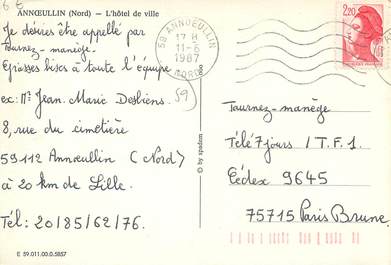 6 €
ANNŒULLIN (Nord) — L'hôtel de ville
Je désires être appelé par
Tournez-manège.
Grosses bises à toute l'équipe
ex: Mr Jean. Marie Desbiens.
8, rue du cimetière
59112 Annœullin (Nord)
à 20 km de Lille.
Tél: 20/85/62/76.
E 59.011.00.0.5857
59
© by spadem
59 ANNŒULLIN
17 H
11-6
1987
NORD
2,20
Tournez-manège
Télé 7 jours / T.F.1.
Cédex 9645
75715 Paris Brune.